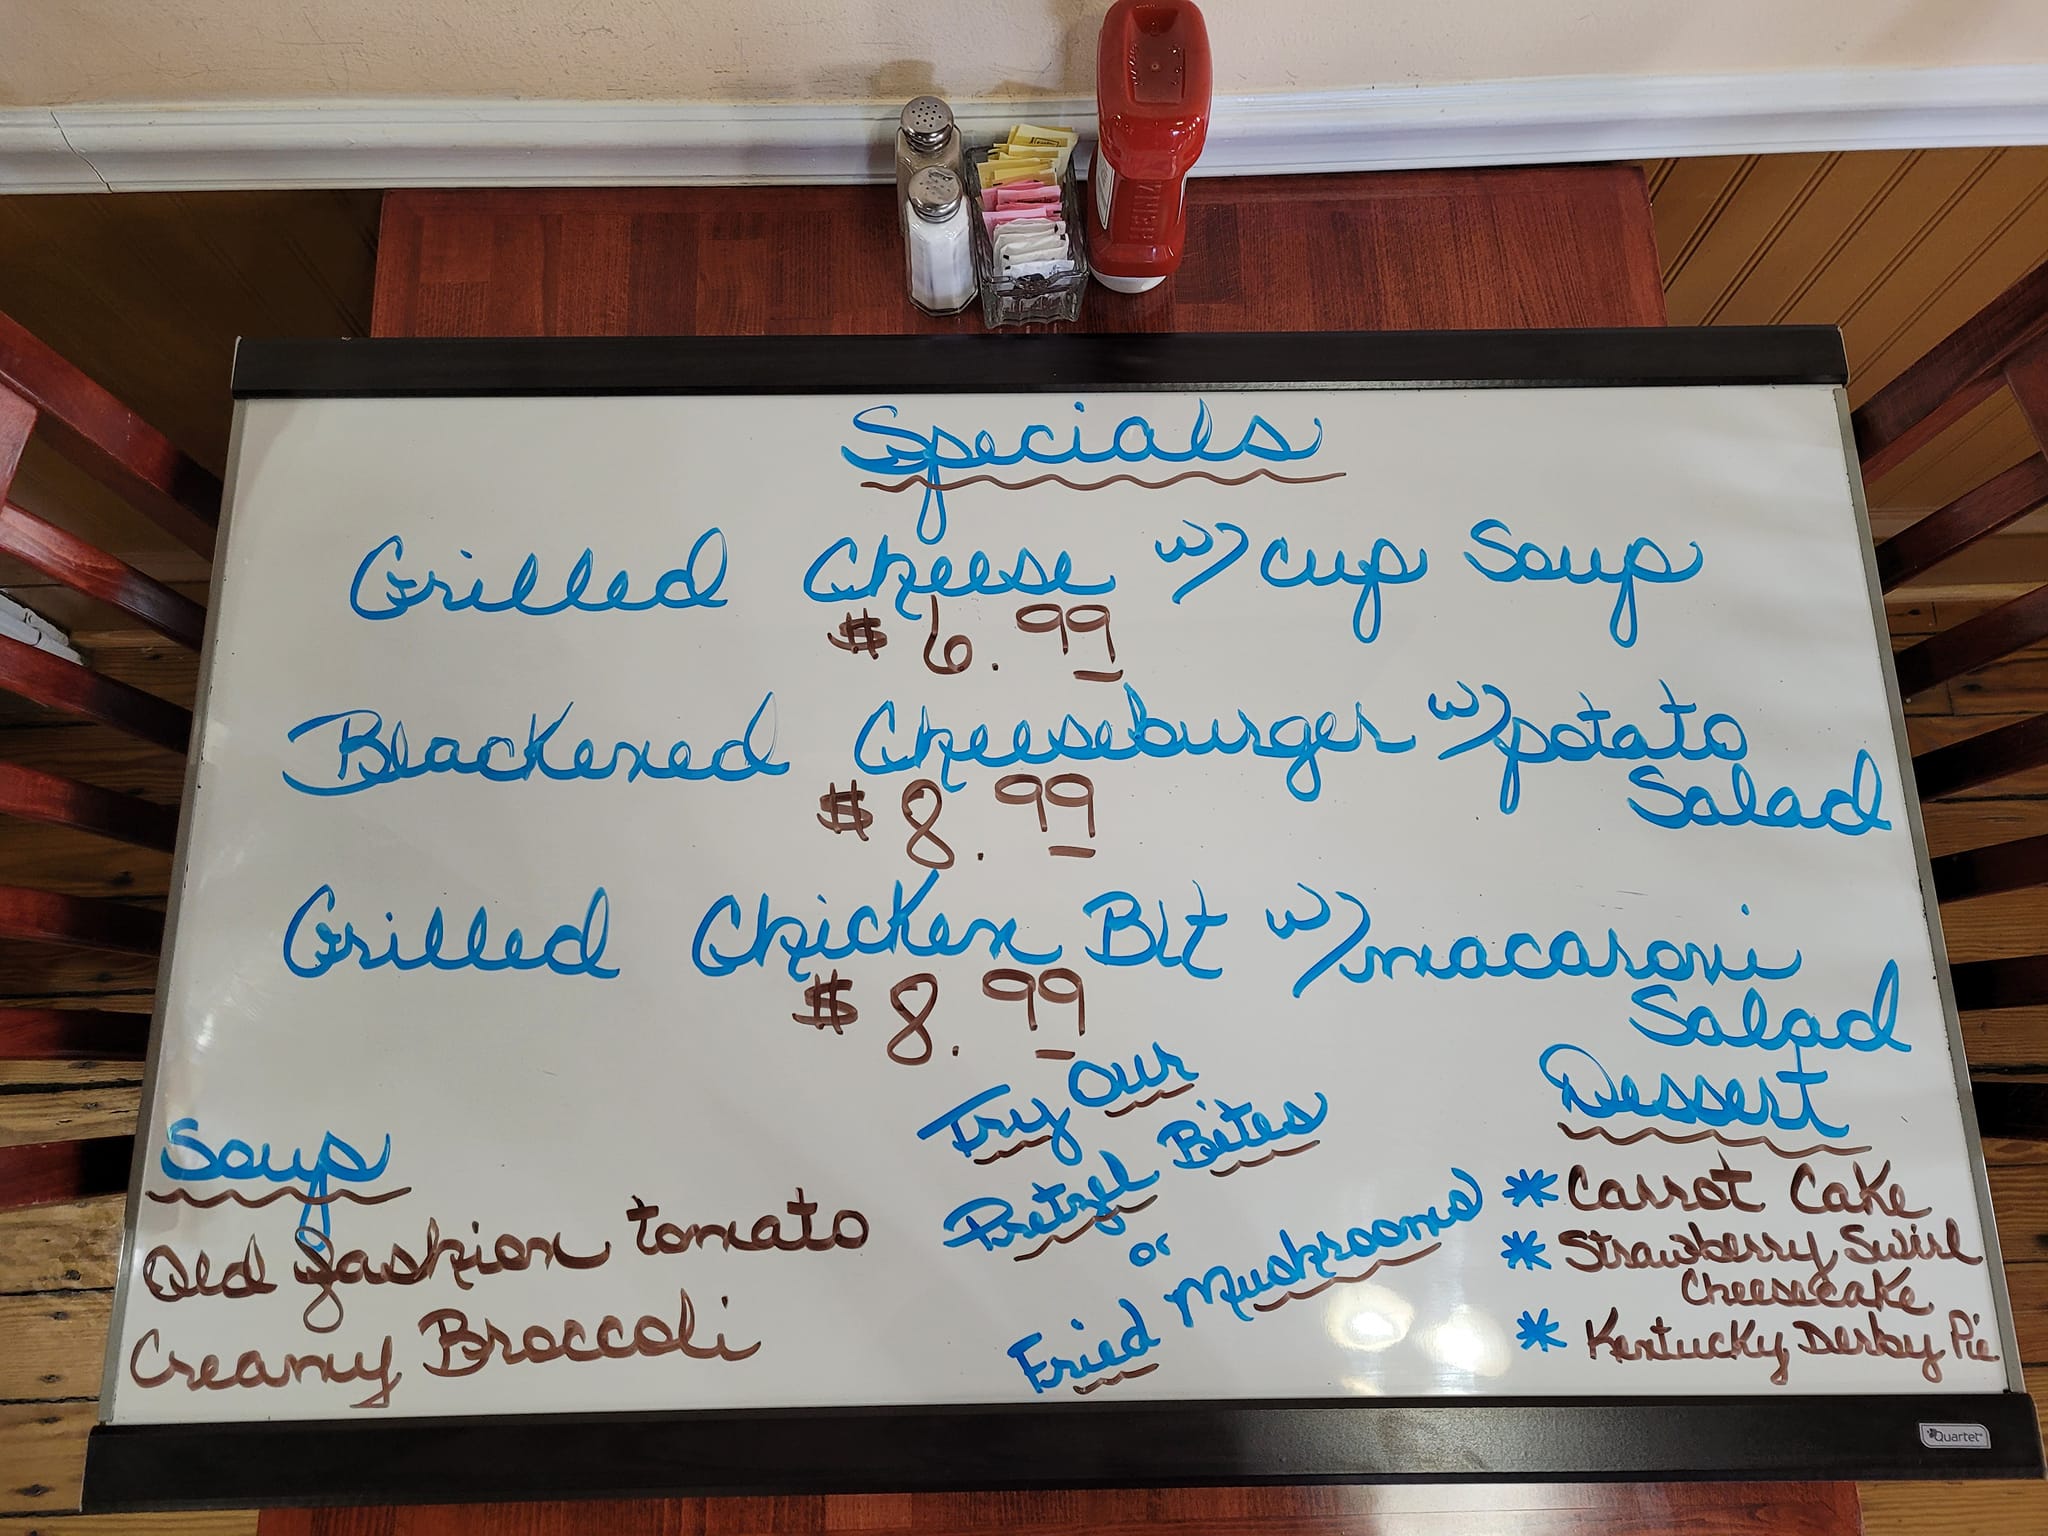 HEINZ
Specials
Grilled Cheese w/ cup Soup
$6.99
Blackened Cheeseburger w/ potato
Salad
$8.99
Grilled Chicken Blt w/ macaroni
Salad
$8.99
Soup
Old fashion tomato
Creamy Broccoli
Try Our
Pretzel Bites
or
Fried Mushrooms
Dessert
* Carrot Cake
* Strawberry Swirl
Cheesecake
* Kentucky Derby Pie
Quartet